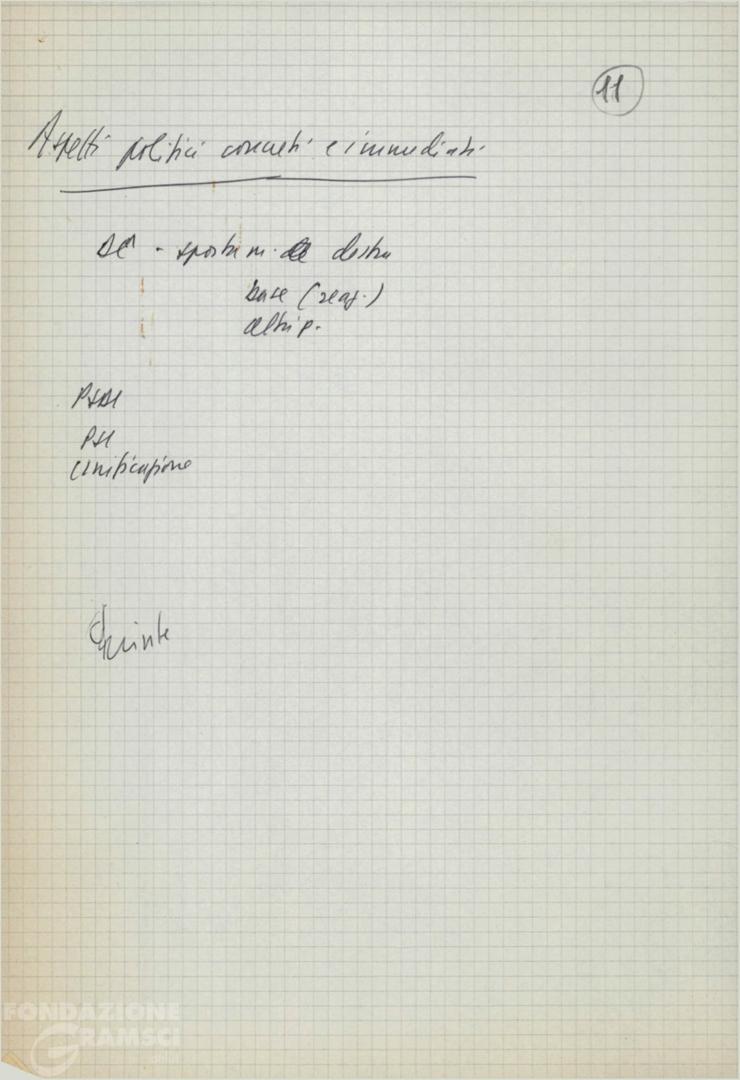 11
Aspetti politici concreti e immediati
DC - spostam. destra
base (reaz.)
altri p.
PSDI
PSI
unificazione
FONDAZIONE
GRAMSCI